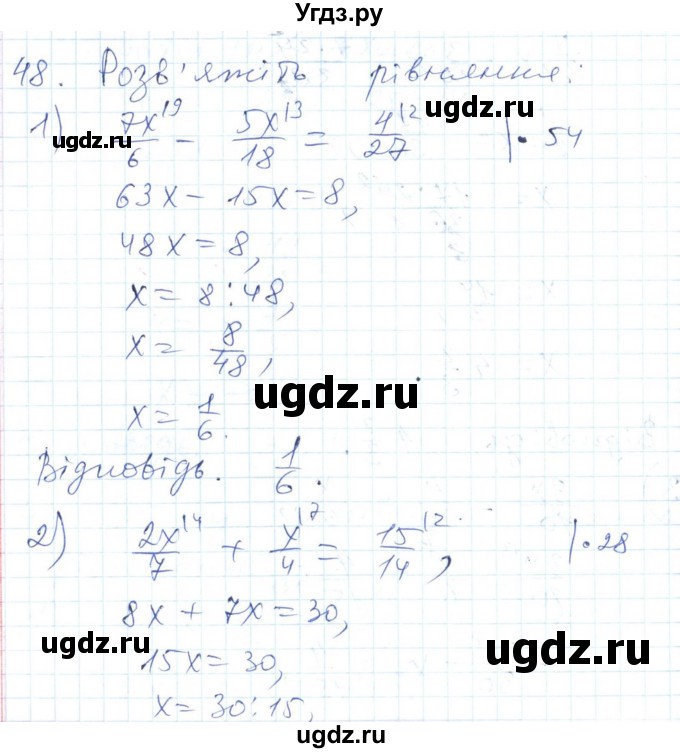 Угдз.ру
48. Розв'яжіть рівняння:
1) 7x/6 |9 - 5x/18 |3 = 4/27 |2 |· 54
ugdz.ru ugdz.ru
63x - 15x = 8,
48x = 8,
x = 8:48,
x = 8/48,
ugdz.ru
x = 1/6.
Відповідь. 1/6.
2) 2x/7 |4 + x/4 |7 = 15/14 |2, |· 28
8x + 7x = 30,
ugdz.ru ugdz.ru
15x = 30,
x = 30:15,
ugdz.ru